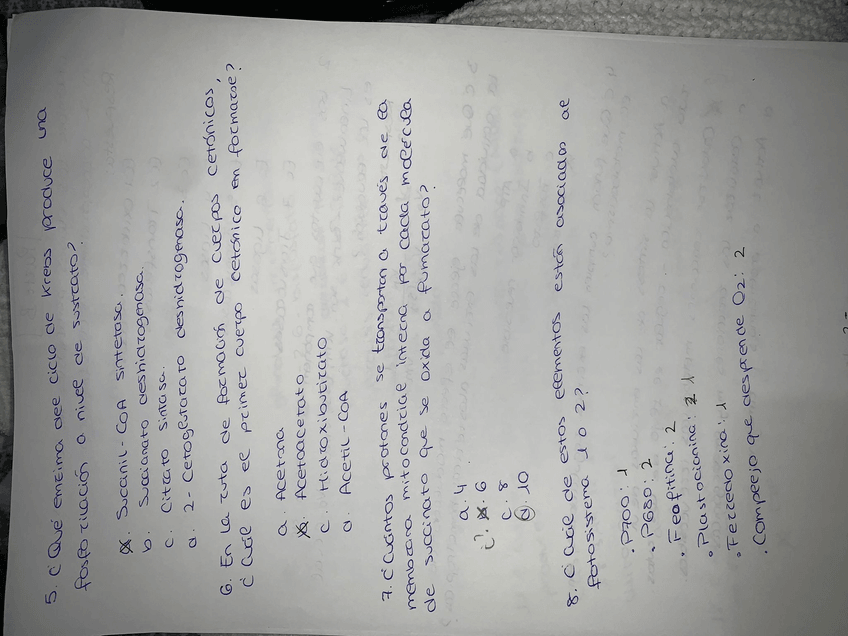 5. ¿Qué enzima del ciclo de Krebs produce una
fosforilación a nivel de sustrato?
a. Succinil-CoA sintetasa.
b. Succianato deshidrogenasa.
c. Citrato sintasa.
d. 2-Cetoglutarato deshidrogenasa.
6. En la ruta de formación de cuerpos cetónicos,
¿Cuál es el primer cuerpo cetónico en formarse?
a. Acetona
b. Acetoacetato
c. Hidroxibutirato
d. Acetil-CoA
7. ¿Cuántos protones se transportan a través de la
membrana mitocondrial interna por cada molécula
de succinato que se oxida a fumarato?
a. 4
¿? b. 6
c. 8
d. 10
8. ¿Cuál de estos elementos están asociados al
fotosistema 1 o 2?
• P700: 1
• P680: 2
• Feofitina: 2
• Plastocianina: 1
• Ferredoxina: 1
• Complejo que desprende O2: 2